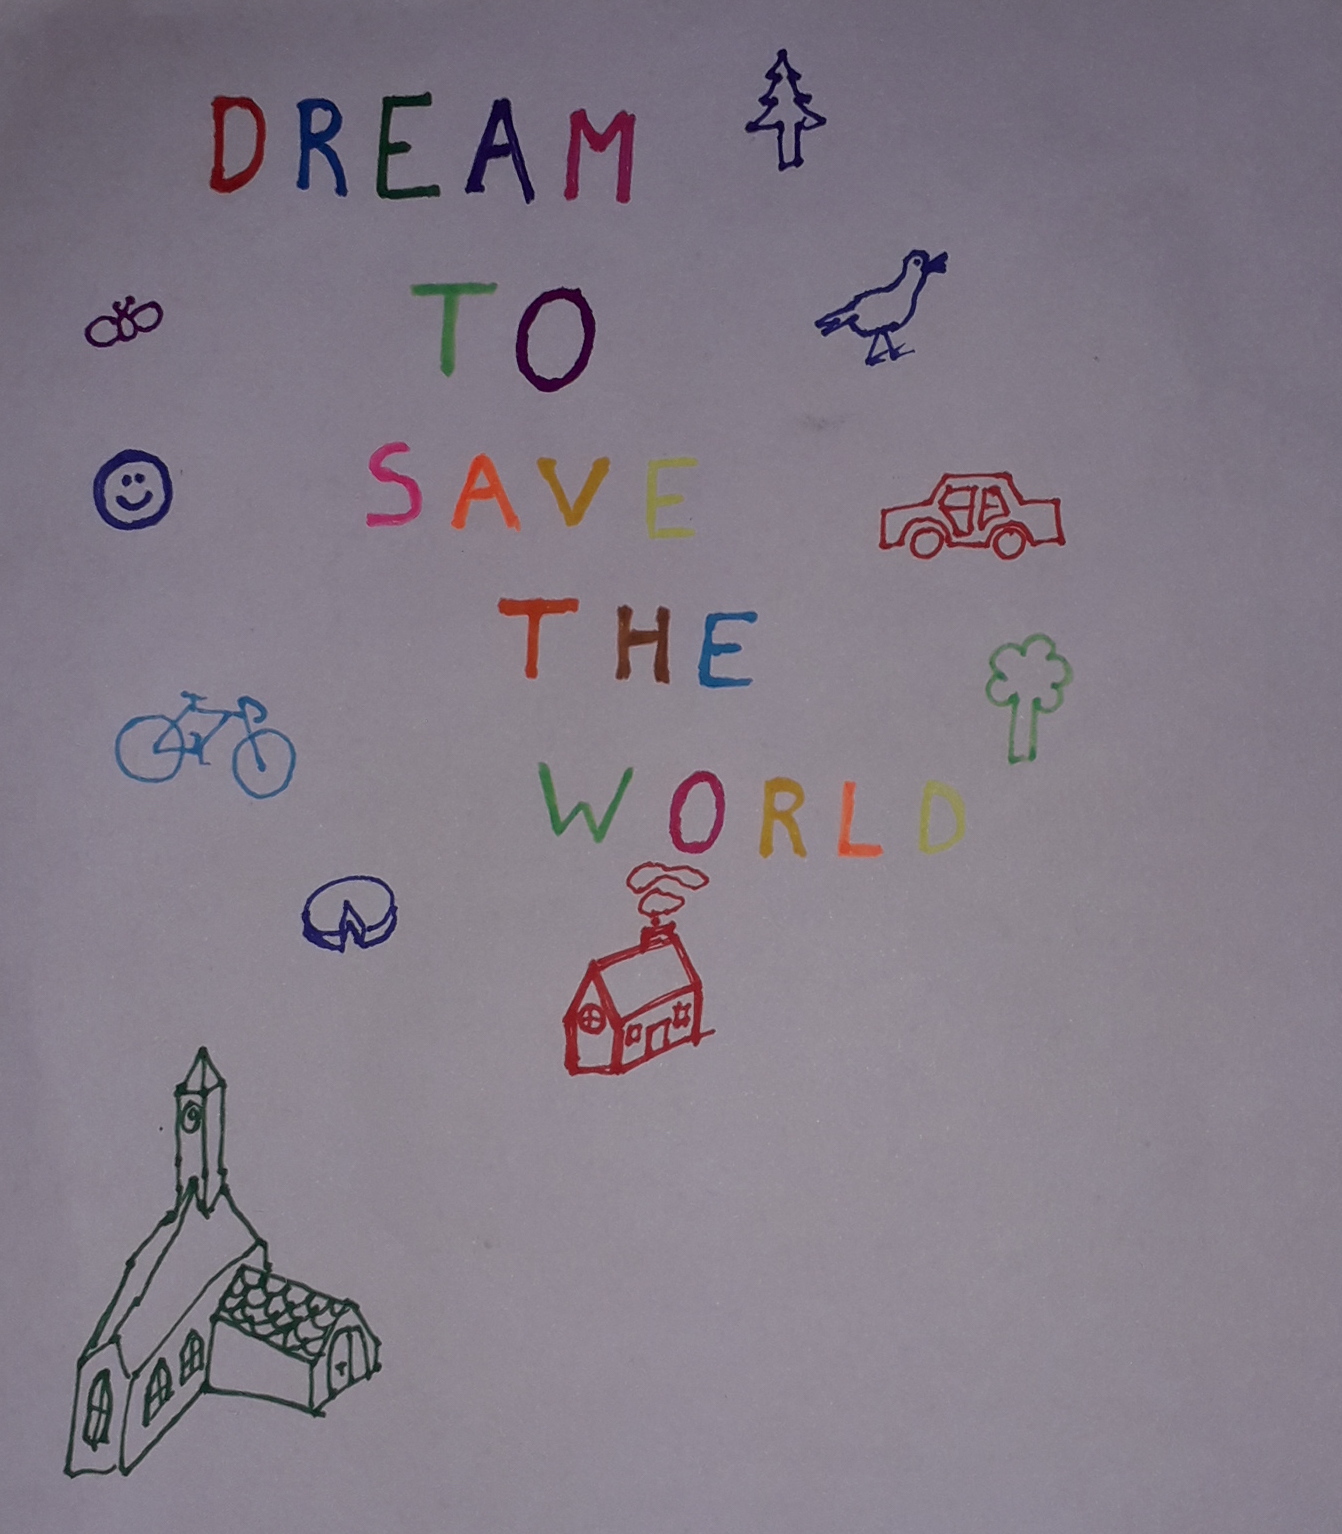 DREAM
TO
SAVE
THE
WORLD